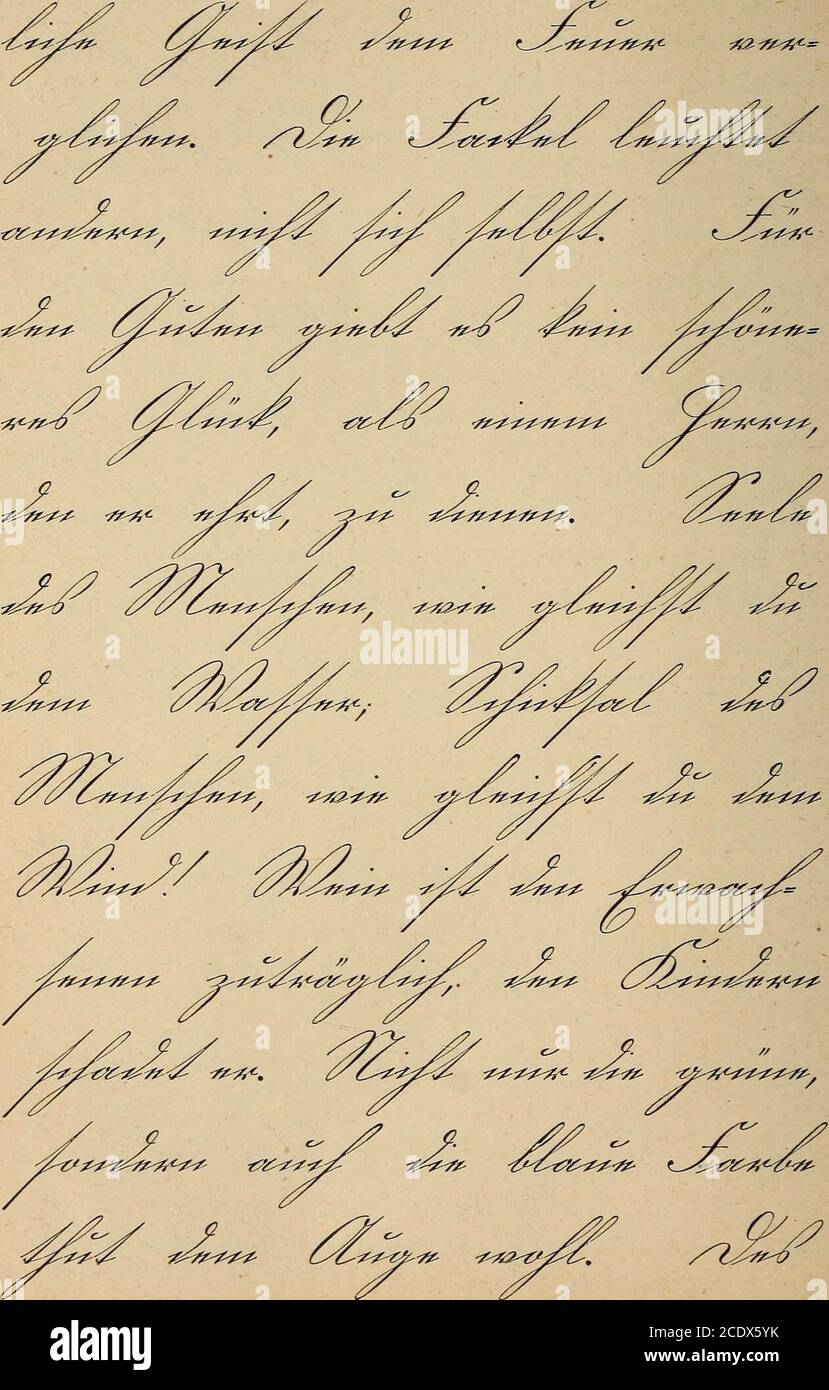 liche Geist dem Feuer ver=
glichen. Die Fackel leuchtet
andern, nicht sich selbst. Für
den Guten giebt es kein schöne=
res Glück, als einem Herrn,
den er ehrt, zu dienen. Seele
des Menschen, wie gleichst du
dem Wasser; Schicksal des
Menschen, wie gleichst du dem
Wind! Wein ist den Erwach=
senen zuträglich, den Kindern
schadet er. Nicht nur die grüne,
sondern auch die blaue Farbe
thut dem Auge wohl. Des
alamy
alamy
alamy
alamy
Image ID: 2CDX5YK
www.alamy.com